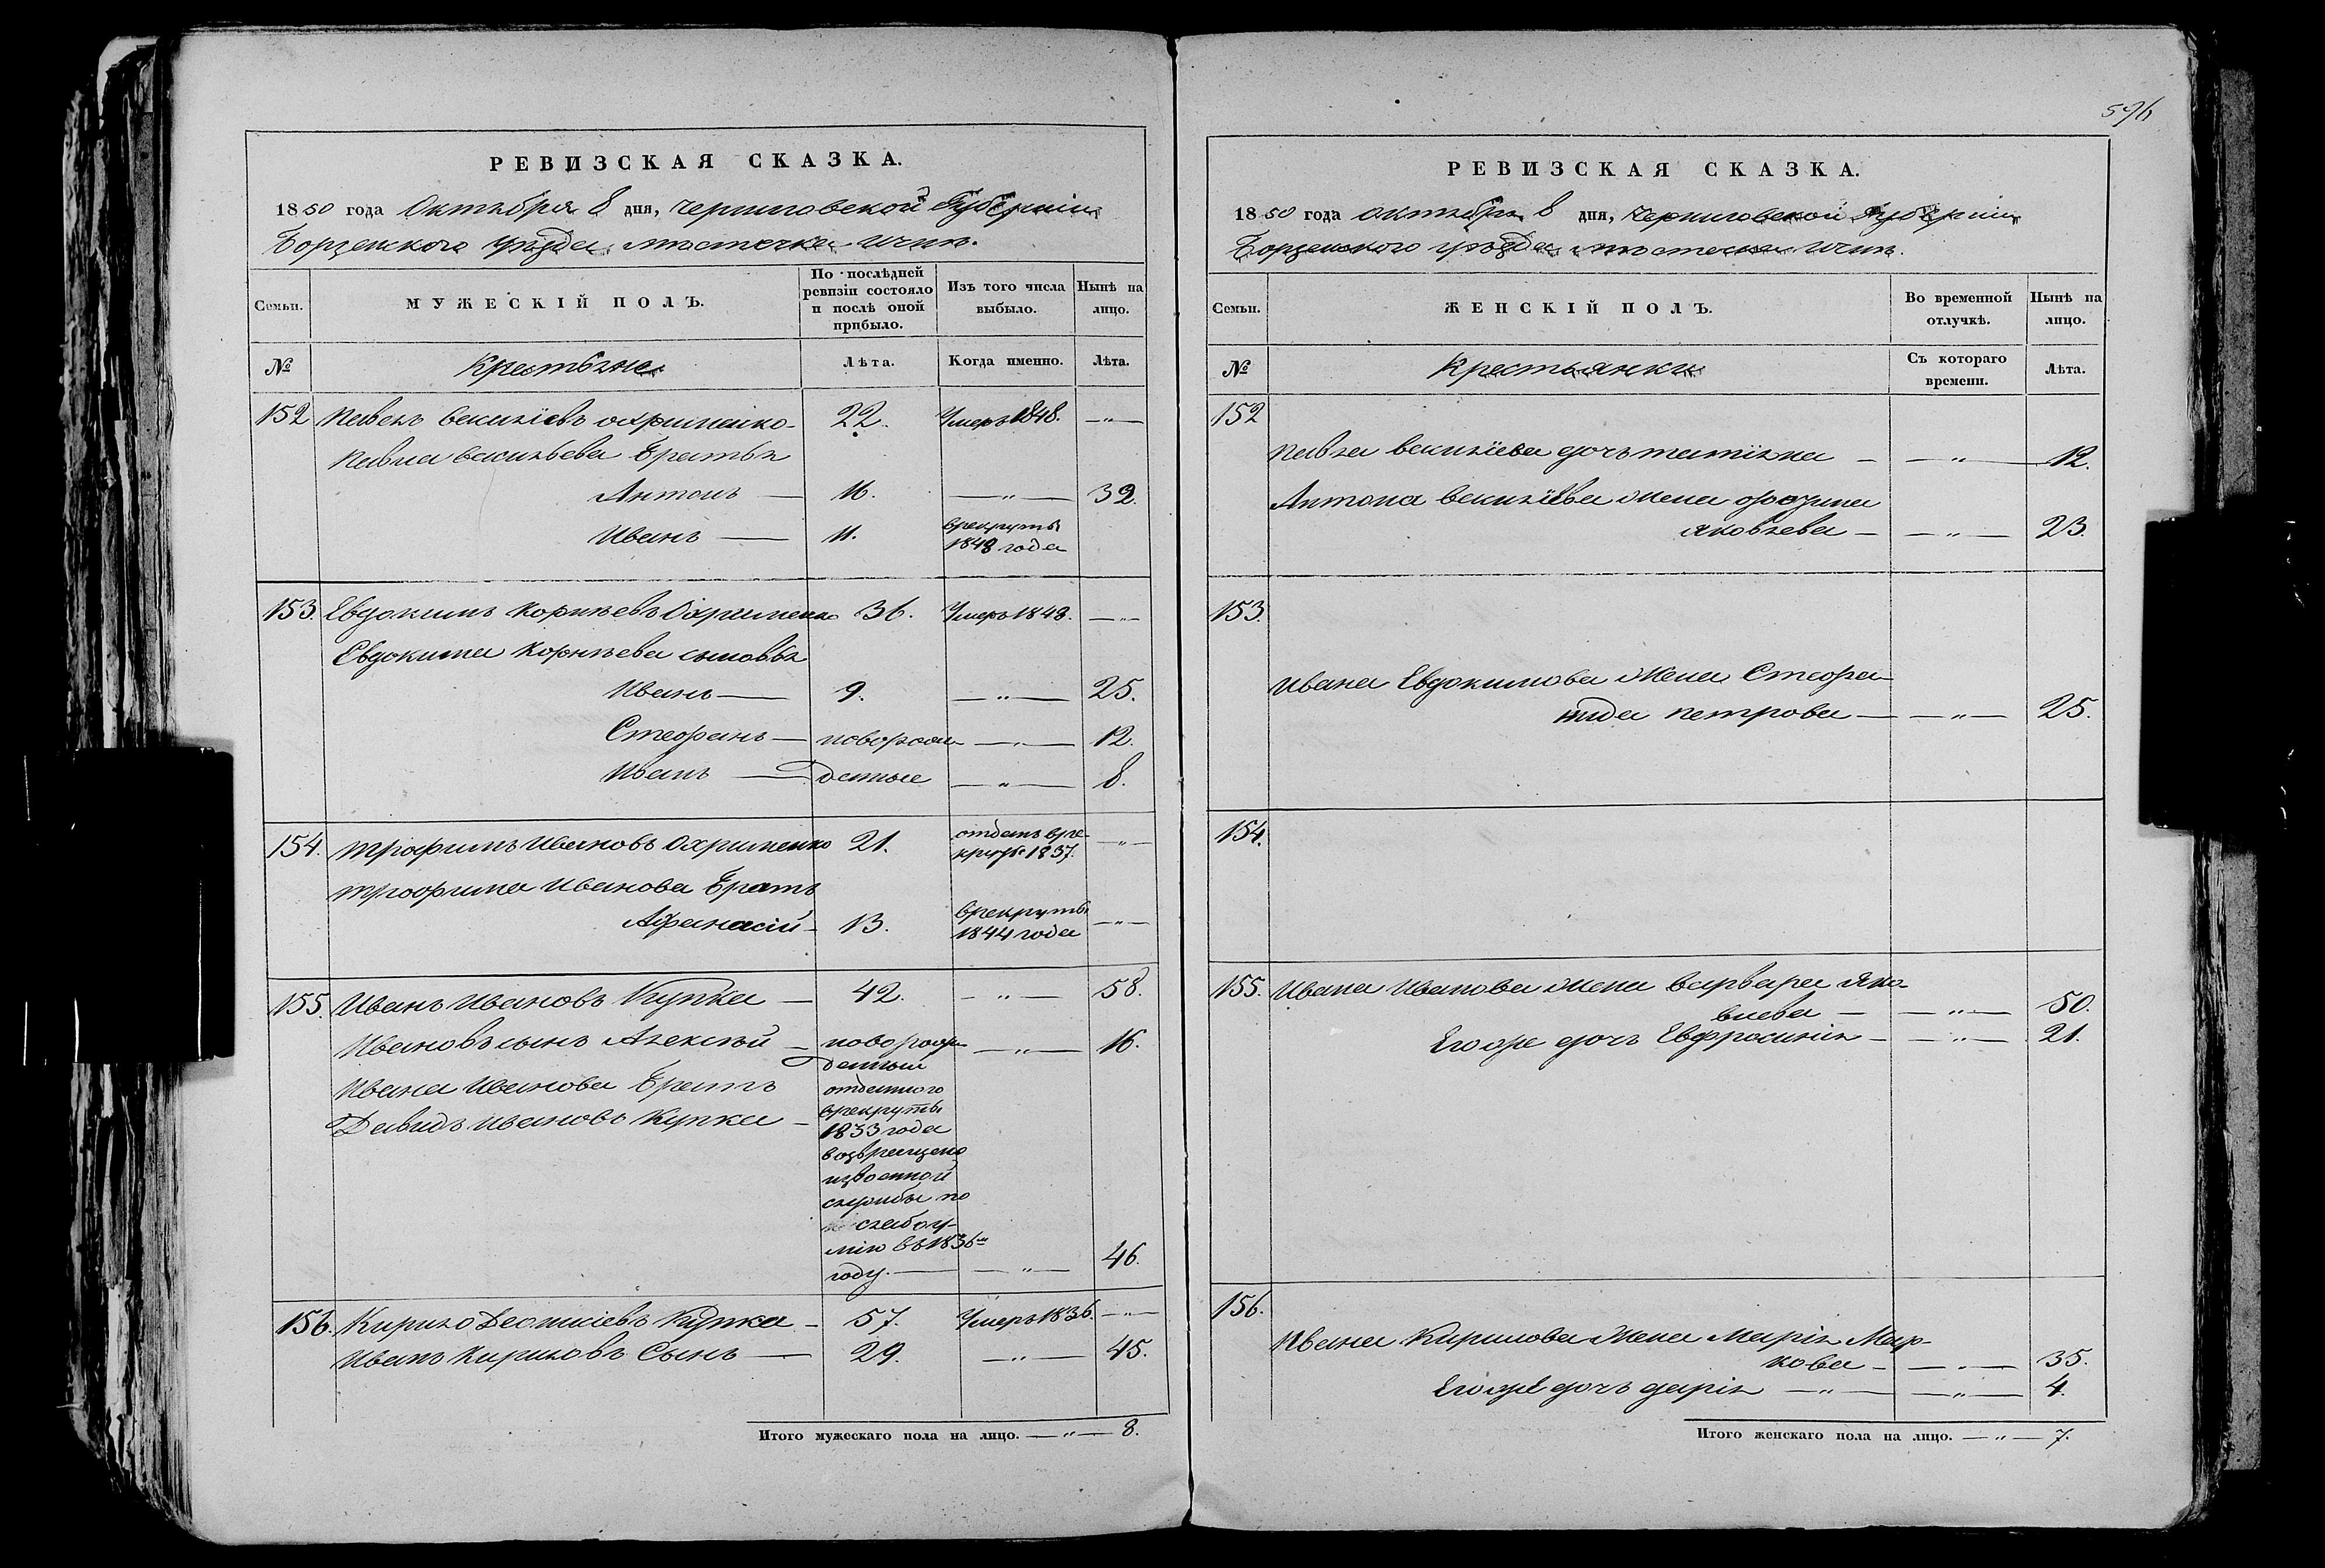 596
РЕВИЗСКАЯ СКАЗКА.
1850 года Октября 8 дня, Черниговской Губерніи
Борзенского уезда, местечка Ични.
Семьи.
МУЖЕСКІЙ ПОЛЪ.
По послѣдней ревизіи состояло и послѣ оной прибыло.
Изъ того числа выбыло.
Нынѣ на лицо.
№
Крестьяне
Лѣта.
Когда именно.
Лѣта.
152 Павелъ Васильевъ Охрименко 22. Умеръ 1848. —"—
Павла Васильева братья
Антонъ — 16. —"— 32.
Иванъ — 11. в рекруты
1848 года
153. Евдокимъ Корнѣевъ Охрименко 36. Умеръ 1848. —"—
Евдокима Корнѣева сыновья
Иванъ — 9. —"— 25.
Стефанъ — новорож —"— 12.
Иванъ — денные —"— 8.
154. Трофимъ Ивановъ Охрименко 21. отданъ в ре- —"—
круты 1837.
Трофима Иванова братъ
Афанасій — 13. в рекруты —"—
1844 года
155. Иванъ Ивановъ Купка — 42. —"— 58.
Ивановъ сынъ Алексѣй — новорож —"— 16.
денный
Ивана Иванова братъ отданного
Давидъ Ивановъ Купка — в рекруты
1833 года
возвращено
из военной
службы по
слабоу-
мію въ 1836м
году. — —"— 46.
156. Кирило Деонисіевъ Купка — 57. Умеръ 1836. —"—
Иванъ Кириловъ Сынъ — 29. —"— 45.
Итого мужескаго пола на лицо. —"— 8.
РЕВИЗСКАЯ СКАЗКА.
1850 года октября 8 дня, Черниговской Губерніи
Борзенского уезда местечка Ични.
Семьи.
ЖЕНСКІЙ ПОЛЪ.
Во временной отлучкѣ.
Нынѣ на лицо.
№
Крестьянки
Съ котораго времени.
Лѣта.
152
Павла Васильева дочь Татіяна — —"— 12.
Антона Васильева жена
Яковлева — —"— 23.
153.
Ивана Евдокимова жена Стефа-
нида Петрова — —"— 25.
154.
155. Ивана Иванова жена Варвара Яко-
влева — —"— 50.
Его же дочь Евфросинія — —"— 21.
156.
Ивана Кирилова жена Марія Мар-
кова — —"— 35.
Его же дочь Дарія —"— —"— 4.
Итого женскаго пола на лицо. —"— 7.